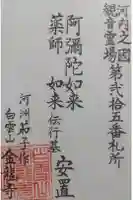 河内之國
観音霊場
第弐拾五番札所
阿彌陀如来
薬師如来
伝行基
安置
河洲茄子作
白雲山
金龍寺